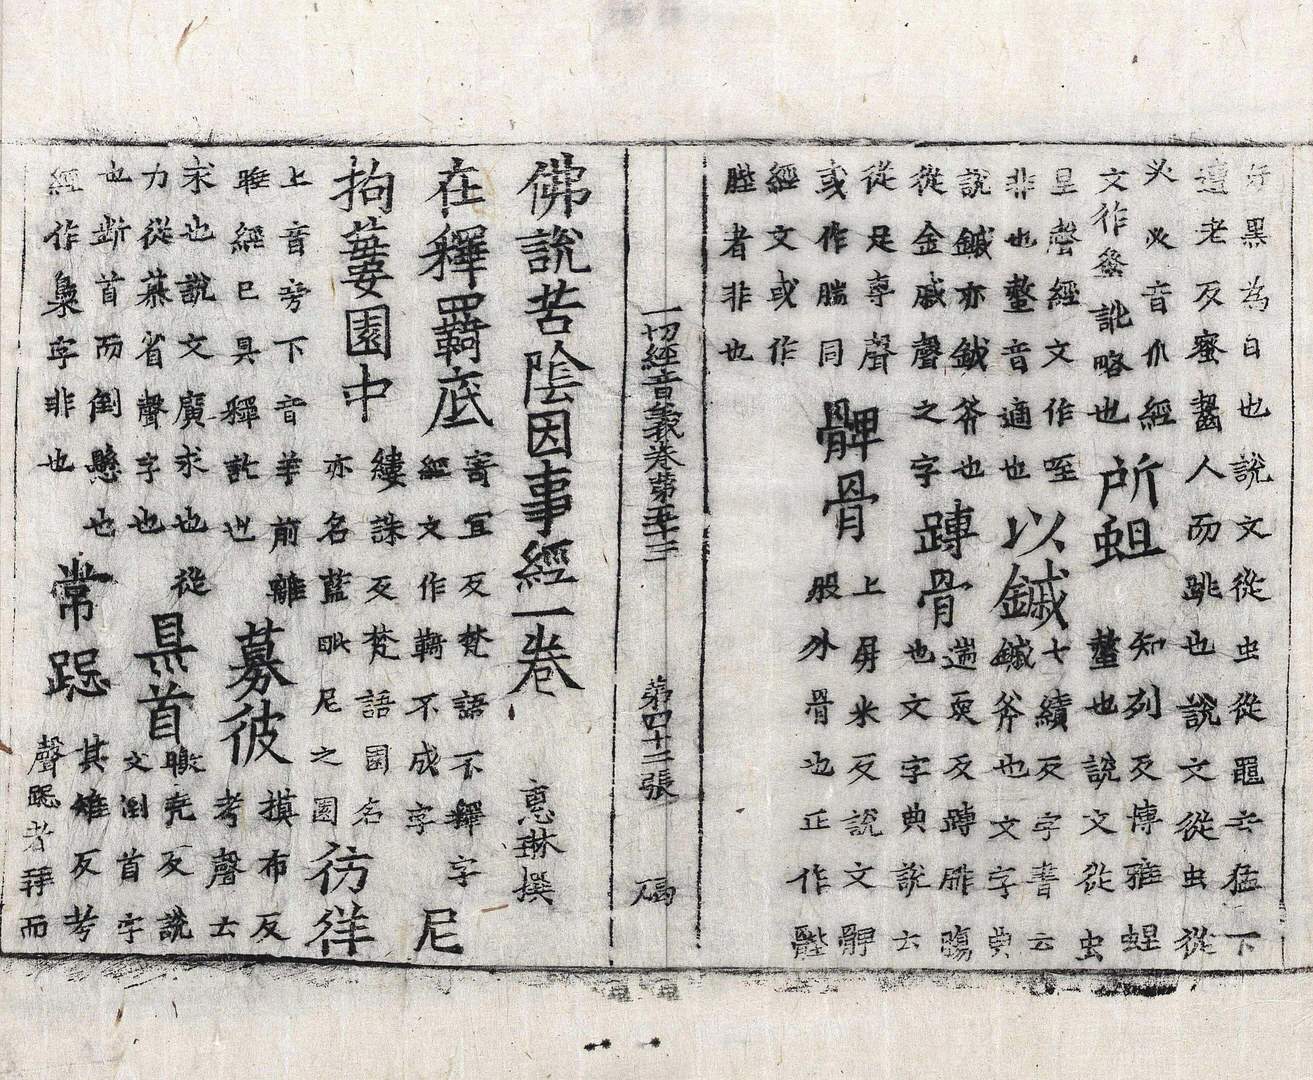 黑為白也說文從虫從黽去猛下
遭老反蜜䘍人而跳也說文從虫從
音爪經
文作蚤訛略也
所蛆
知列反博雅蛆
螫也說文從虫
旦聲經文作咥
非也螫音適也
以鏚
七績反字書云
鏚斧也文字典
說鏚亦鉞斧也
從金戚聲之字
䠾骨
遄耎反䠾腓膓
也文字典說云
從足專聲
或作腨同
髀骨
上屏米反說文髀
股外骨也正作𨄔
經文或作
䏶者非也
一切經音義卷第五十三 第四十二張
佛說苦陰因事經一卷 惠琳撰
在釋羇底
寄冝反梵語不釋字
經文作鞿不成字
尼
拘蔞園中
縷誅反梵語園名
亦名藍毗尼之園
彷徉
上音旁下音羊前離
睢經已具釋訖也
募彼
摸布反
考聲云
求也說文廣求也從
力從慕省聲字也
㬎首
皦堯反說
文倒首字
也斷首而倒懸也
經作梟字非也
常跽
其雉反考
聲跽者拜而